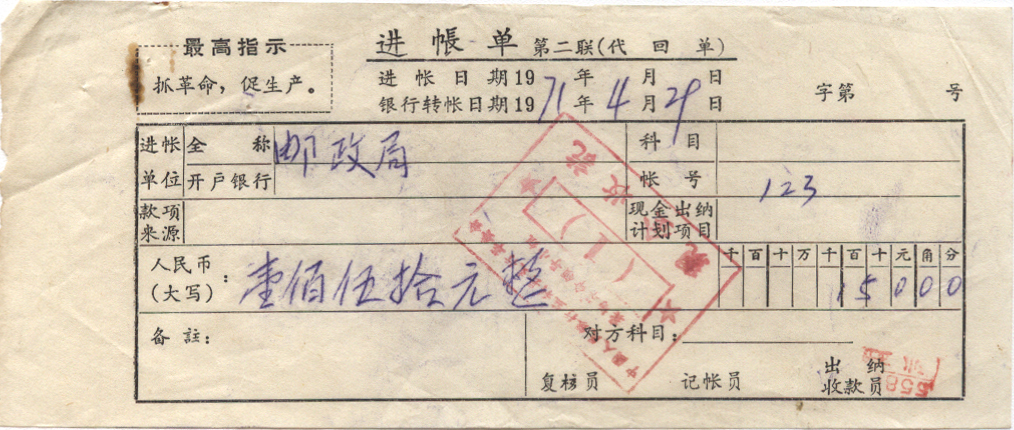 最高指示
抓革命，促生产。
进帐单 第二联(代回单)
进帐日期19 年 月 日
银行转帐日期1971年4月29日
字第 号
进帐单位 全称 邮政局 科目
开户银行 帐号 123
款项来源 现金出纳计划项目
人民币(大写)：壹佰伍拾元整
千百十万千百十元角分
15000
备註： 对方科目：
复核员 记帐员 出纳收款员
现金收讫
(1)
558